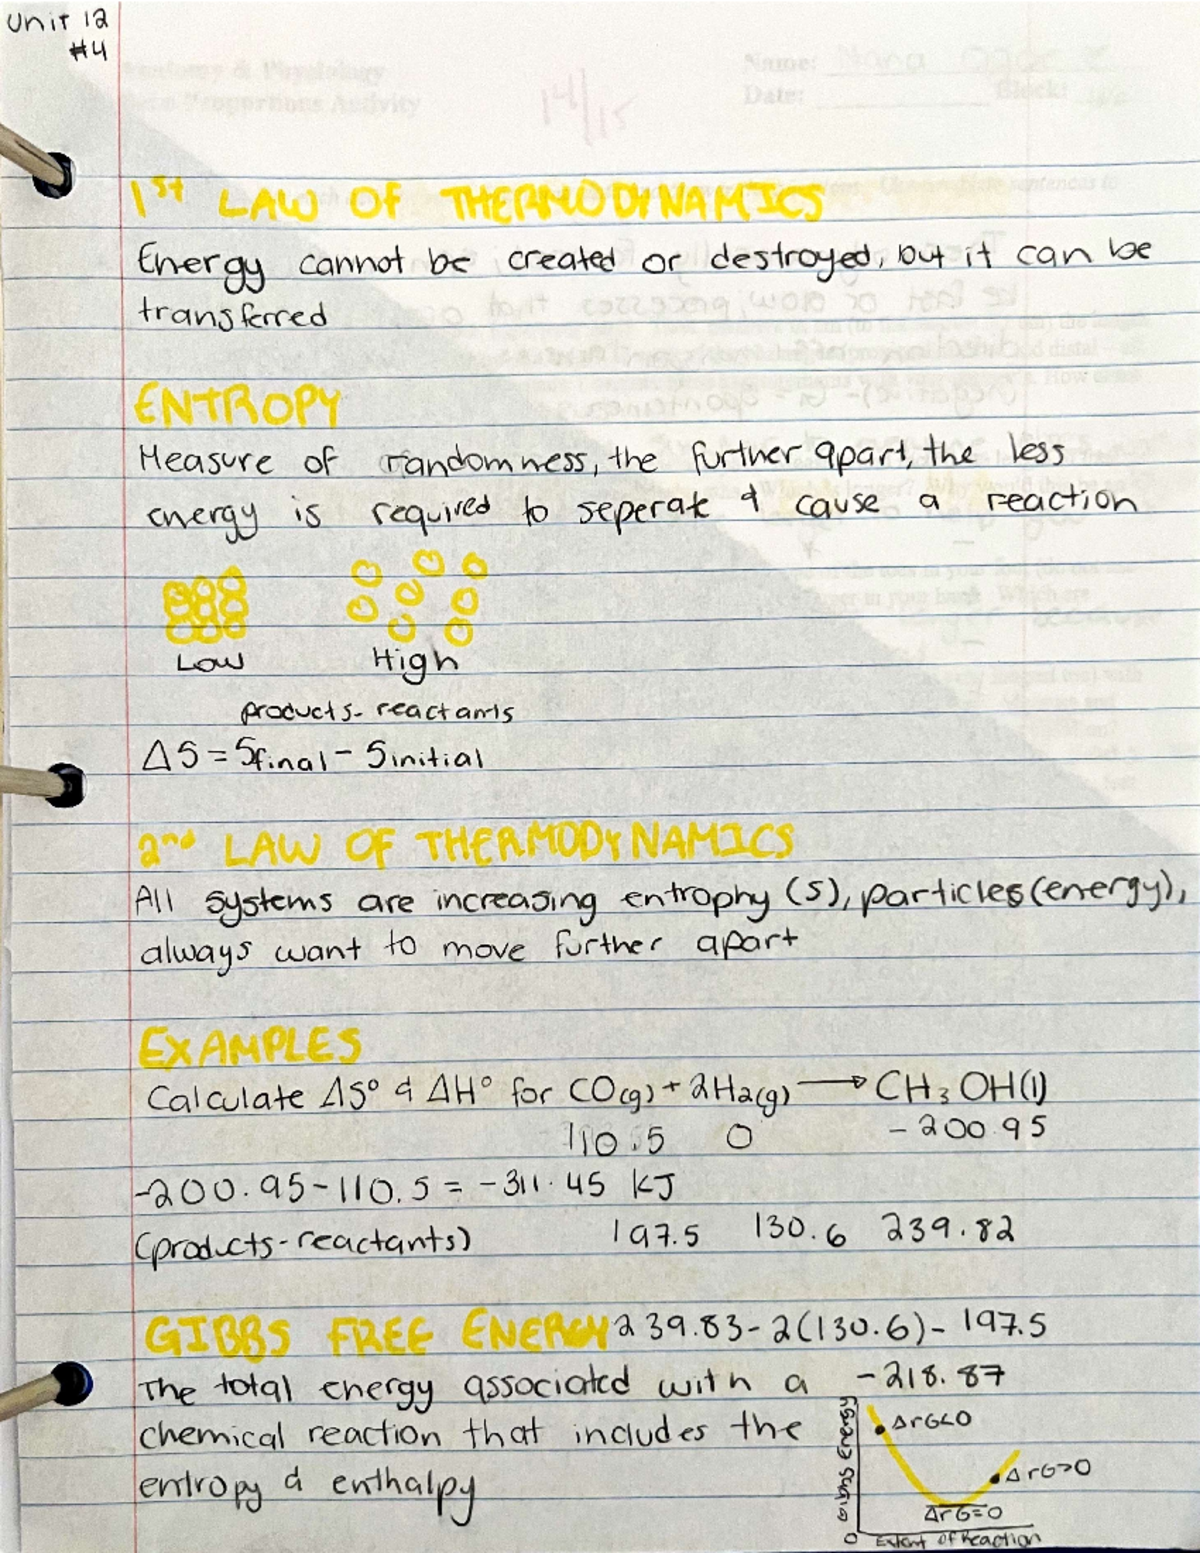 Unit 12
#4
Name:
Date:
14/15
1st LAW OF THERMODYNAMICS
Energy cannot be created or destroyed, but it can be
transferred
ENTROPY
Measure of randomness, the further apart, the less
energy is required to seperate & cause a reaction
Low High
products - reactants
ΔS = Sfinal - Sinitial
2nd LAW OF THERMODYNAMICS
All systems are increasing entrophy (S), particles (energy),
always want to move further apart
EXAMPLES
Calculate ΔS° & ΔH° for CO(g) + 2H2(g) → CH3OH(l)
110.5 0 -200.95
-200.95-110.5 = -311.45 KJ
(products-reactants) 197.5 130.6 239.82
GIBBS FREE ENERGY 239.83-2(130.6)- 197.5
The total energy associated with a -218.87
chemical reaction that includes the
entropy & enthalpy
Gibbs Energy
ΔrG<0
ΔrG>0
ΔrG=0
0 Extent of Reaction